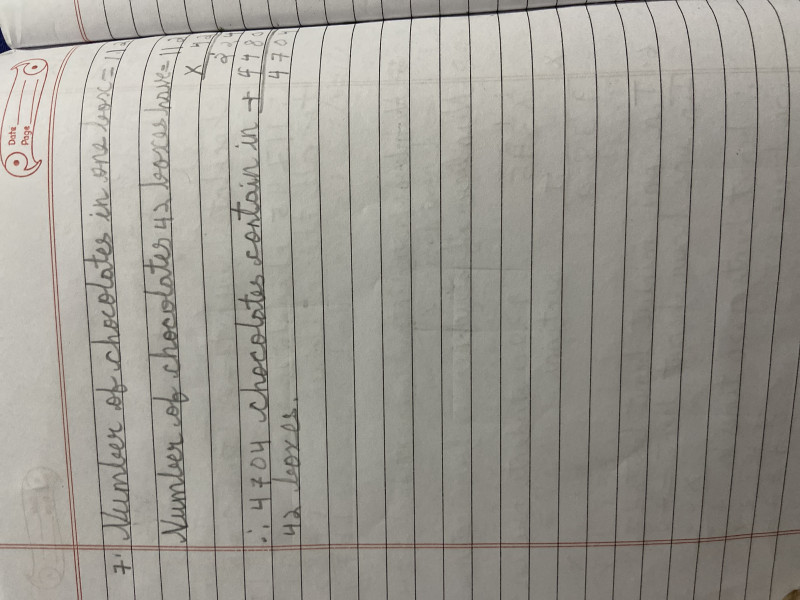 Date
Page
7. Number of chocolates in one box = 112
Number of chocolates 42 boxes have = 112
× 42
224
+ 4480
∴ 4704 chocolates contain in
4704
42 boxes.